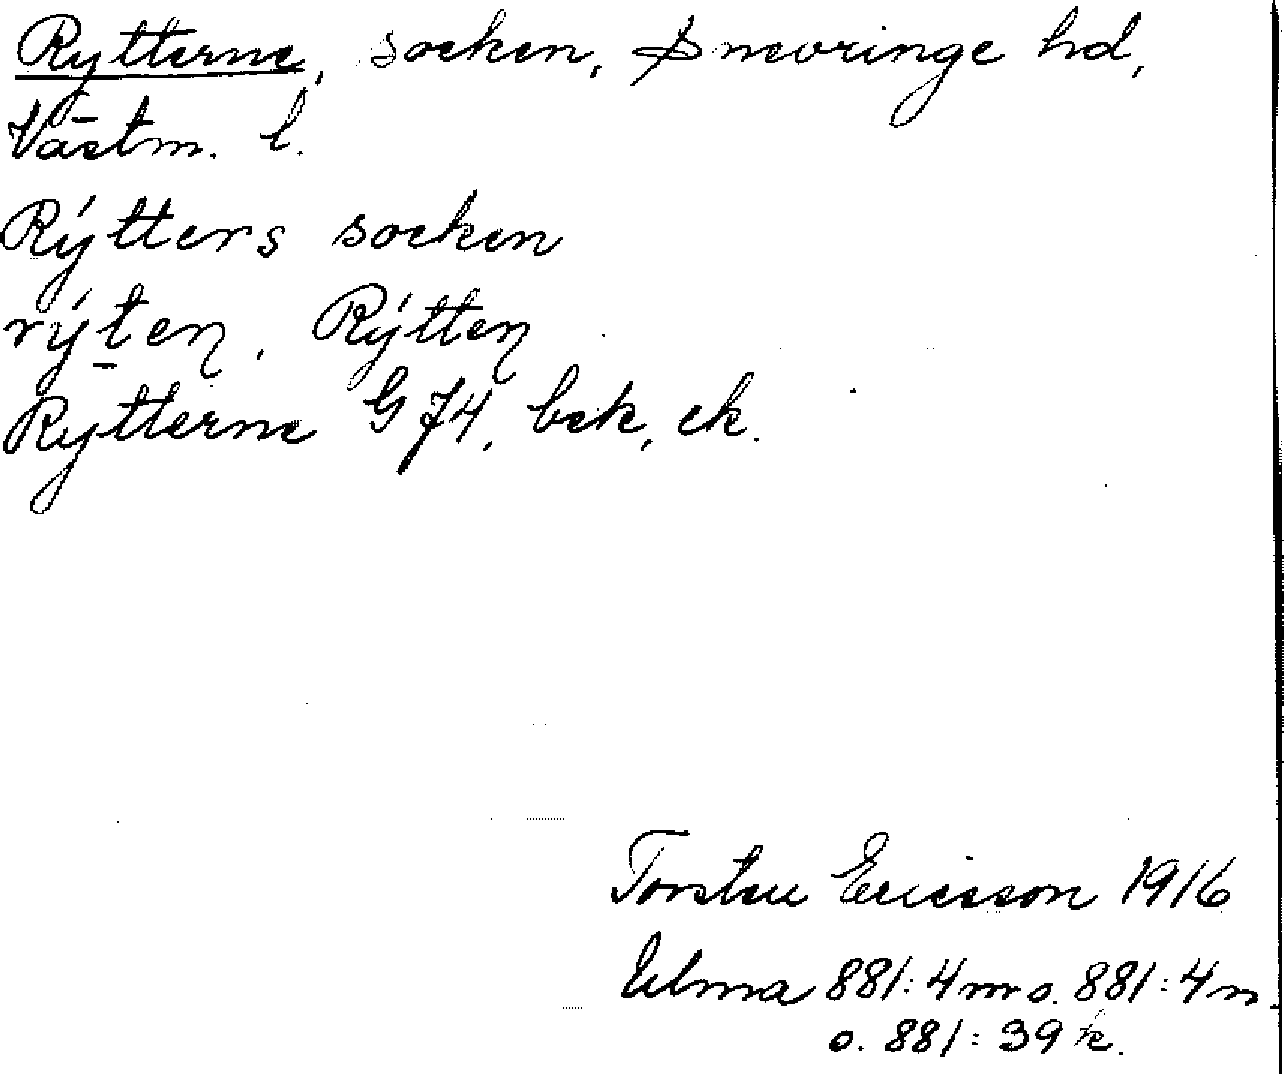 Rytterne, socken, Snevringe hd,
Västm. l.
Rýtters socken
rýt̠eꞃ, Rýtteꞃ
Rytterne G 74, bek, ek.
Torsten Ericsson 1916
Ulma 881:4 m o. 881:4 n
o. 881:39 k.